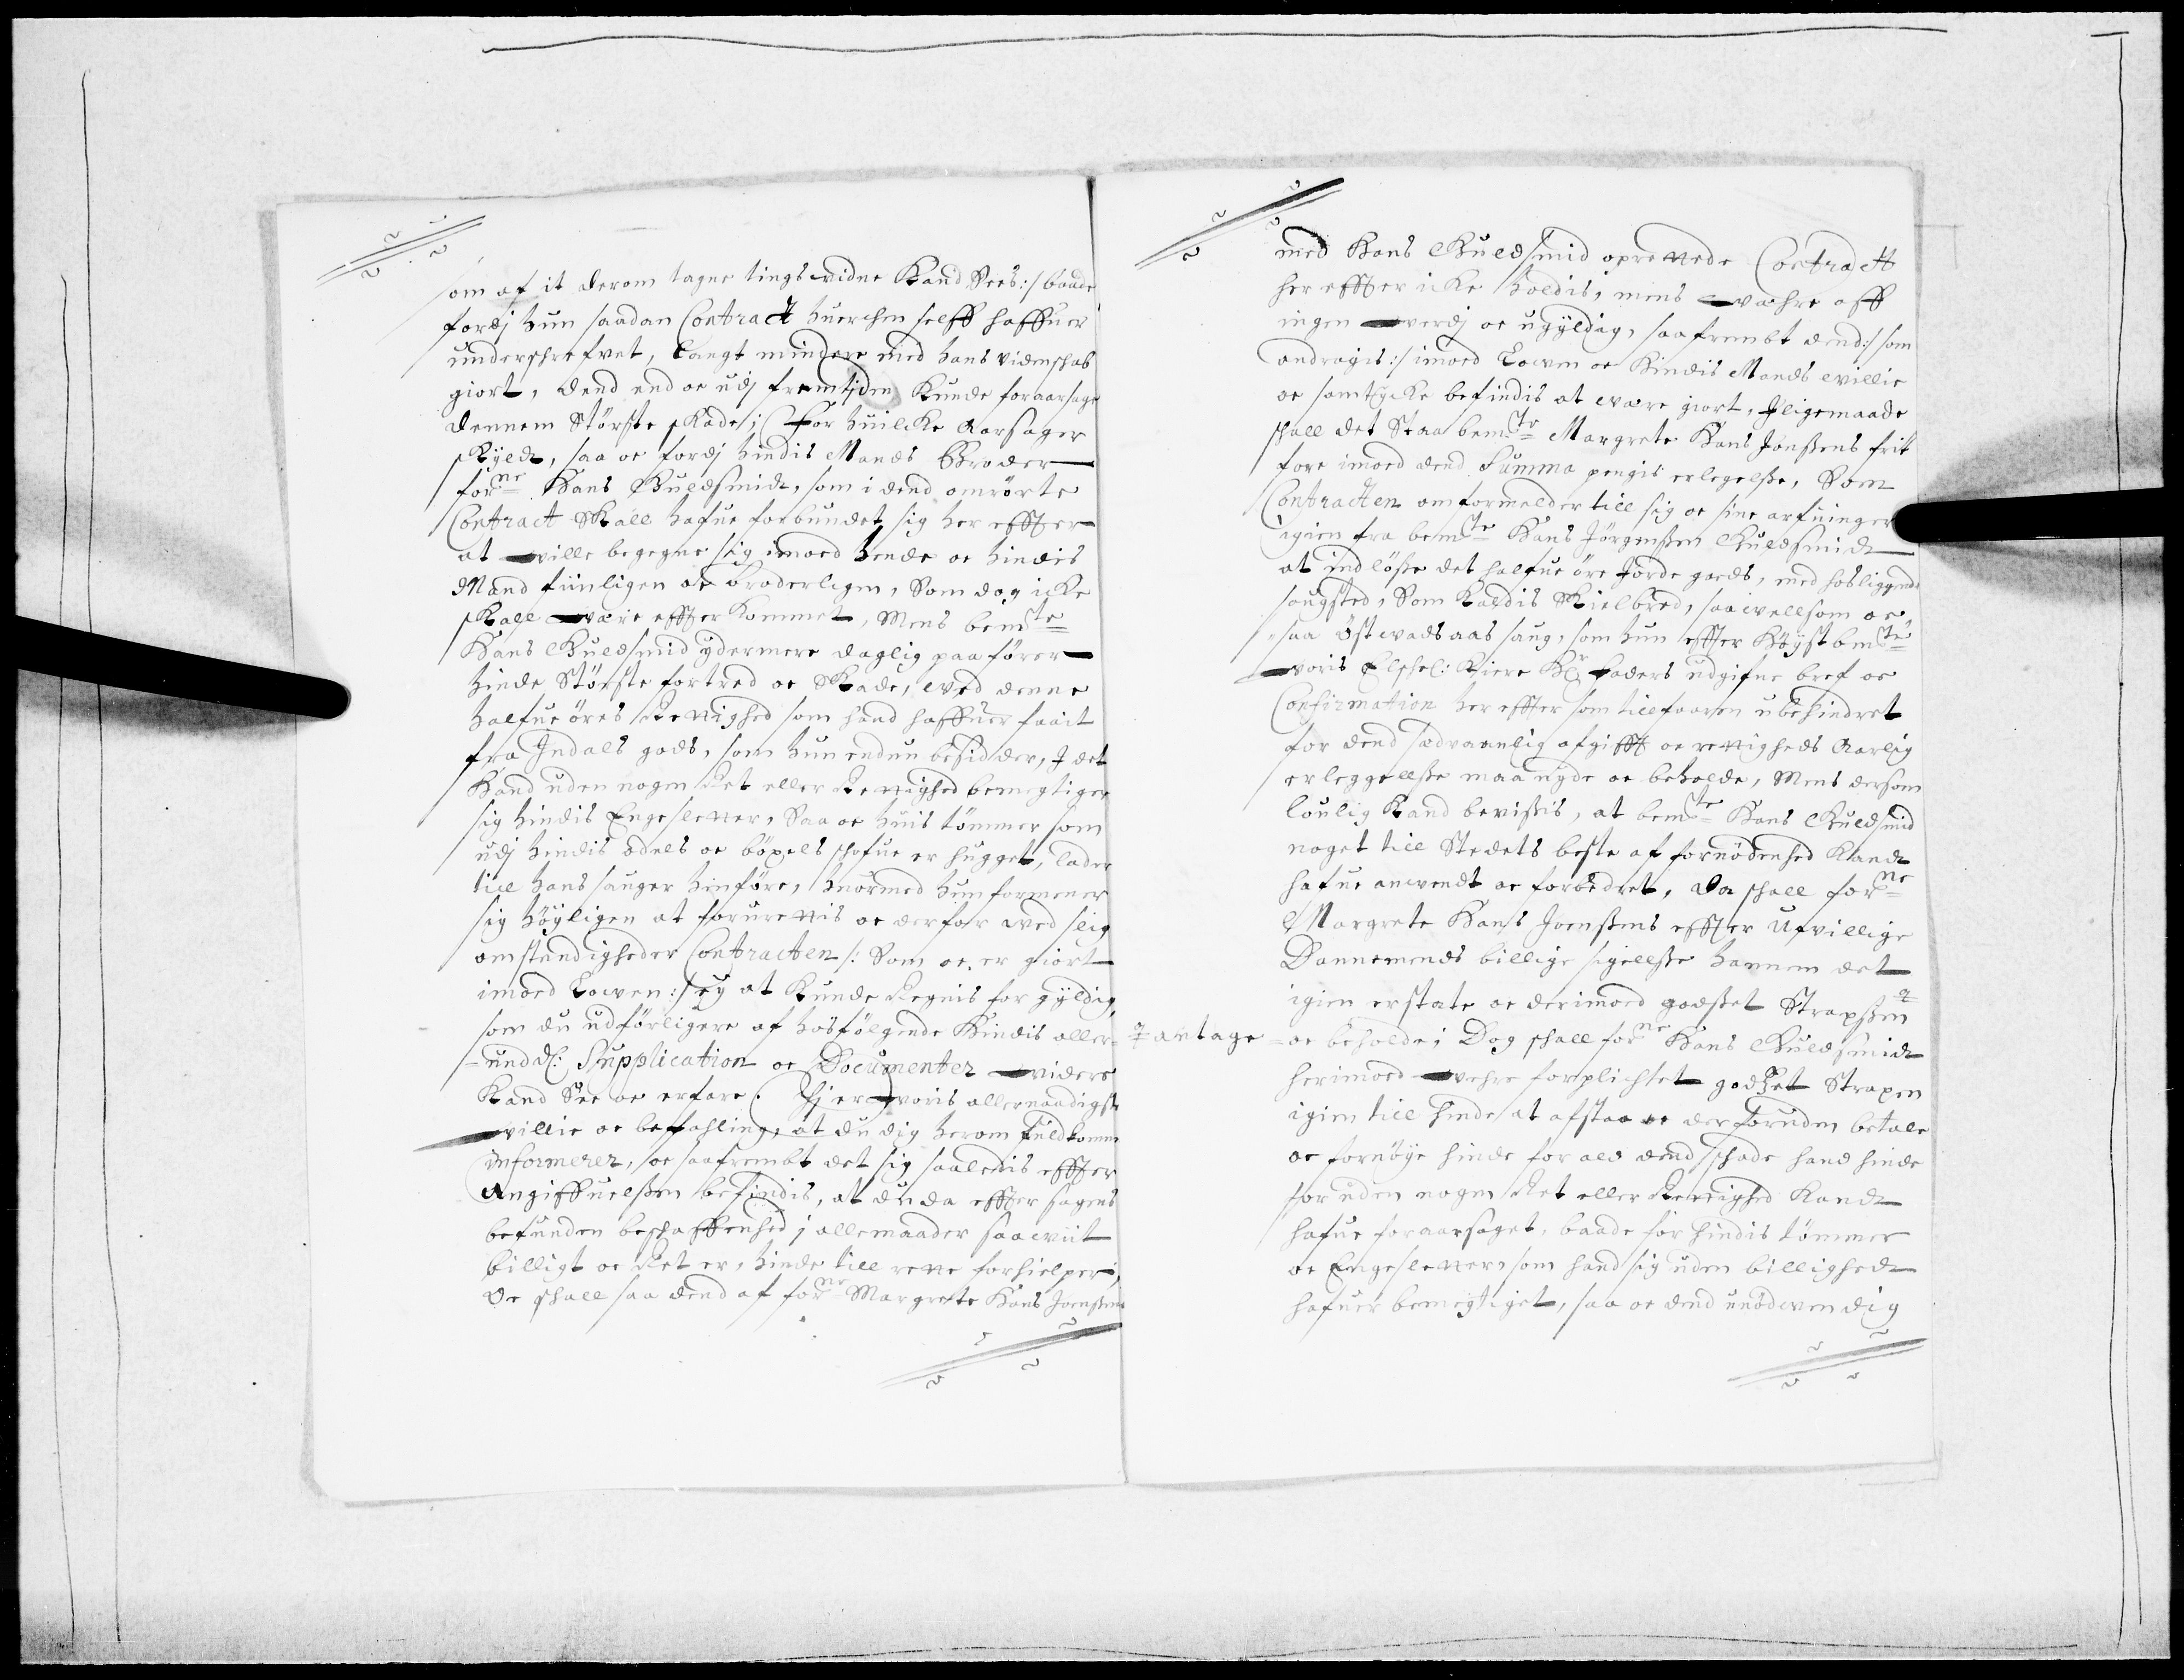 som af it derom tagne tingsvidne Kand Sees:/ baade
fordj hun saadan Contract huerchen selff haffuer
underschrefvet, langt mindere med hans videnschab
giort, dend end oc udj fremtjden Kunde foraarsage
dennem Störste skade; For huilcke Aarsager
skyldt, saa oc fordj hindis Mands Broder
forne Hans Guldsmidt, som i dend omrörte
Contract Skall hafue forbundet sig her effter
at ville begegne sig imoed hende oc hindis
Mand fiinligen oc broderligen, Som dog icke
skall være effterkommet, Mens bemte
Hans Guldsmid ydermere daglig paaförer
hinde Störste fortred oc Skade, ved denne
halfue öres Rettighed som hand haffuer faait
fra Indals gods, som hun endnu besidder, I det
Hand uden nogen Ret eller Rettighed bemegtiger
sig hindis Engesletter, Saa oc huis tömmer som
udj hindis odels oc böxels schofue er hugget, lader
till hans sauger henföre, huormed hun formener
sig höyligen at forurettis oc derfor ved slig
omstendigheder Contracten /: Som oc er giort
imoed Lowen:/ ey at Kunde Regnis for gyldig,
som du udförligere af hosfölgende Hindis aller-
-undd: Supplication oc Documenter videre
Kand See oc erfare. Thj er voris allernaadigste
villie oc befahling, at du dig herom fuldkommen
informerer, oc saafrembt det sig saaledis effter
Angiffuelsen befindis, at du da effter sagens
befunden beschaffenhed j allemaader saa viit
billigt oc Ret er, hinde till rette forhielper,
Oc schall saa dend af forne Margrete Hans Jensens
med Hans Guldsmid oprettede Contract
her effter icke holdis, mens vaehre aff
ingen verdj oc ugyldig, saafrembt dend:/ som
andragis:/ imoed Lowen oc Hindis Mands villie
oc samtycke befindis at være giort, Iligemaade
schall det Staa bemte Margrete Hans Jensens frit
fore imoed dend Summa pengis erlegelse, Som
Contracten omformelder till sig oc sine arfuinger
igien fra bemte Hans Jörgensen Guldsmidt
at indlösse det halfue öre Jorde goeds, med hosliggende
saugsted, Som Kaldis Kielbred, saavellsom oc
saa Östvads aas saug, som hun effter Höystbemte
voris Elschel: Kiere Hr faders udgifne bref oc
Confirmation her effter som tillforen ubehindret
for dend sædvaanlig afgifft oc rettigheds Aarlig
erleggellsse maa nyde oc beholde, Mens dersom
loulig Kand bevissis, at bemte Hans Guldsmid
noget till Stedets beste af fornödenhed Kand
hafue anvendt oc forbedret, da schall forne
Margrete Hans Jensens effter Ufvillige
Dannemends billige sigellsse hannem det
igien erstate oc derimoed godsset Strapssen
antage oc beholde; Dog schall forne Hans Guldsmidt
herimoed vehre forplichtet godsset Straxen
igien till hinde at afstaa oc der foruden betale
oc fornöye hinde for ald dend schade hand hinde
foruden nogen Ret eller Rettighed Kand
hafue foraarsaget, baade for hindis tömmer
oc Engesletter som hand sig uden billighed
hafuer bemegtiget, saa oc dend unödvendig